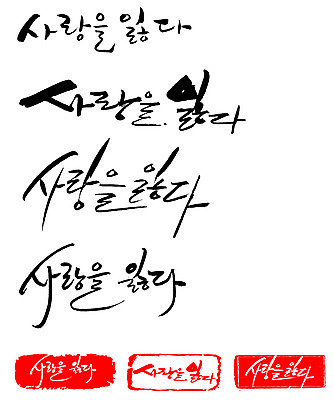 사랑을 잃다
사랑을 잃다
사랑을 잃다
사랑을 잃다
사랑을 잃다 사랑을 잃다 사랑을 잃다